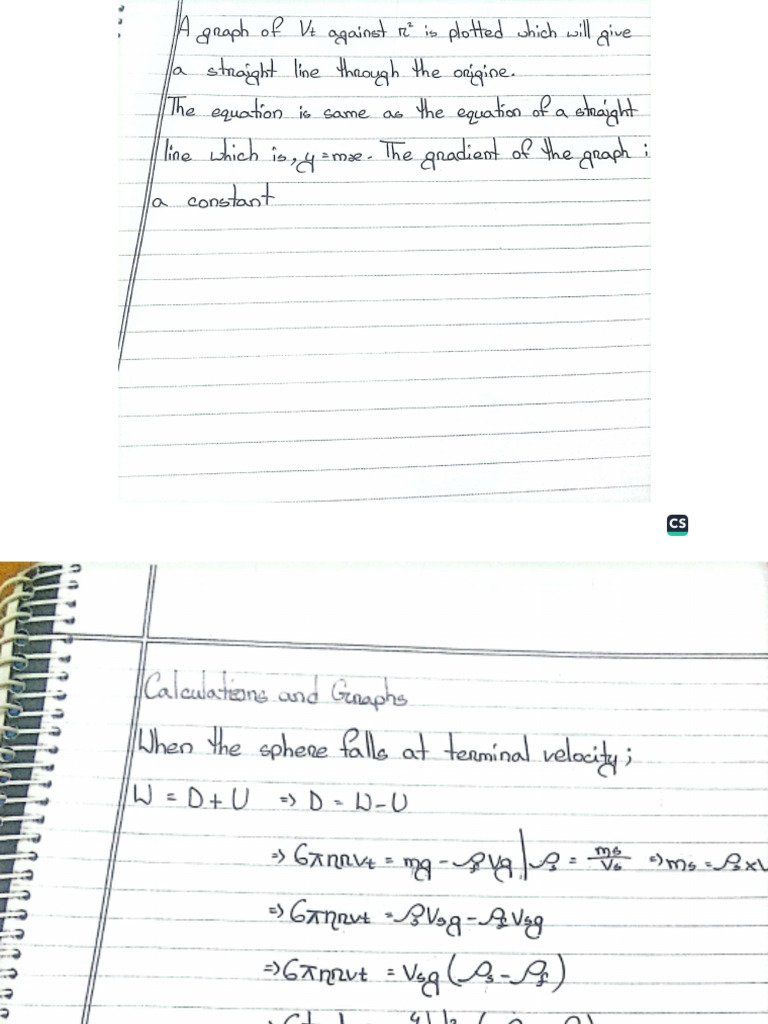 A graph of Vt against r² is plotted which will give
a straight line through the origine.
The equation is same as the equation of a straight
line which is, y = mx. The gradient of the graph i
a constant
CS
Calculations and Graphs
When the sphere falls at terminal velocity;
W = D+U ⇒ D = W-U
⇒ 6πηrvt = mg - ρf Vg | ρs = ms/Vs ⇒ ms = ρs x V
⇒ 6πηrvt = ρsVsg - ρfVsg
⇒ 6πηrvt = Vsg (ρs - ρf)